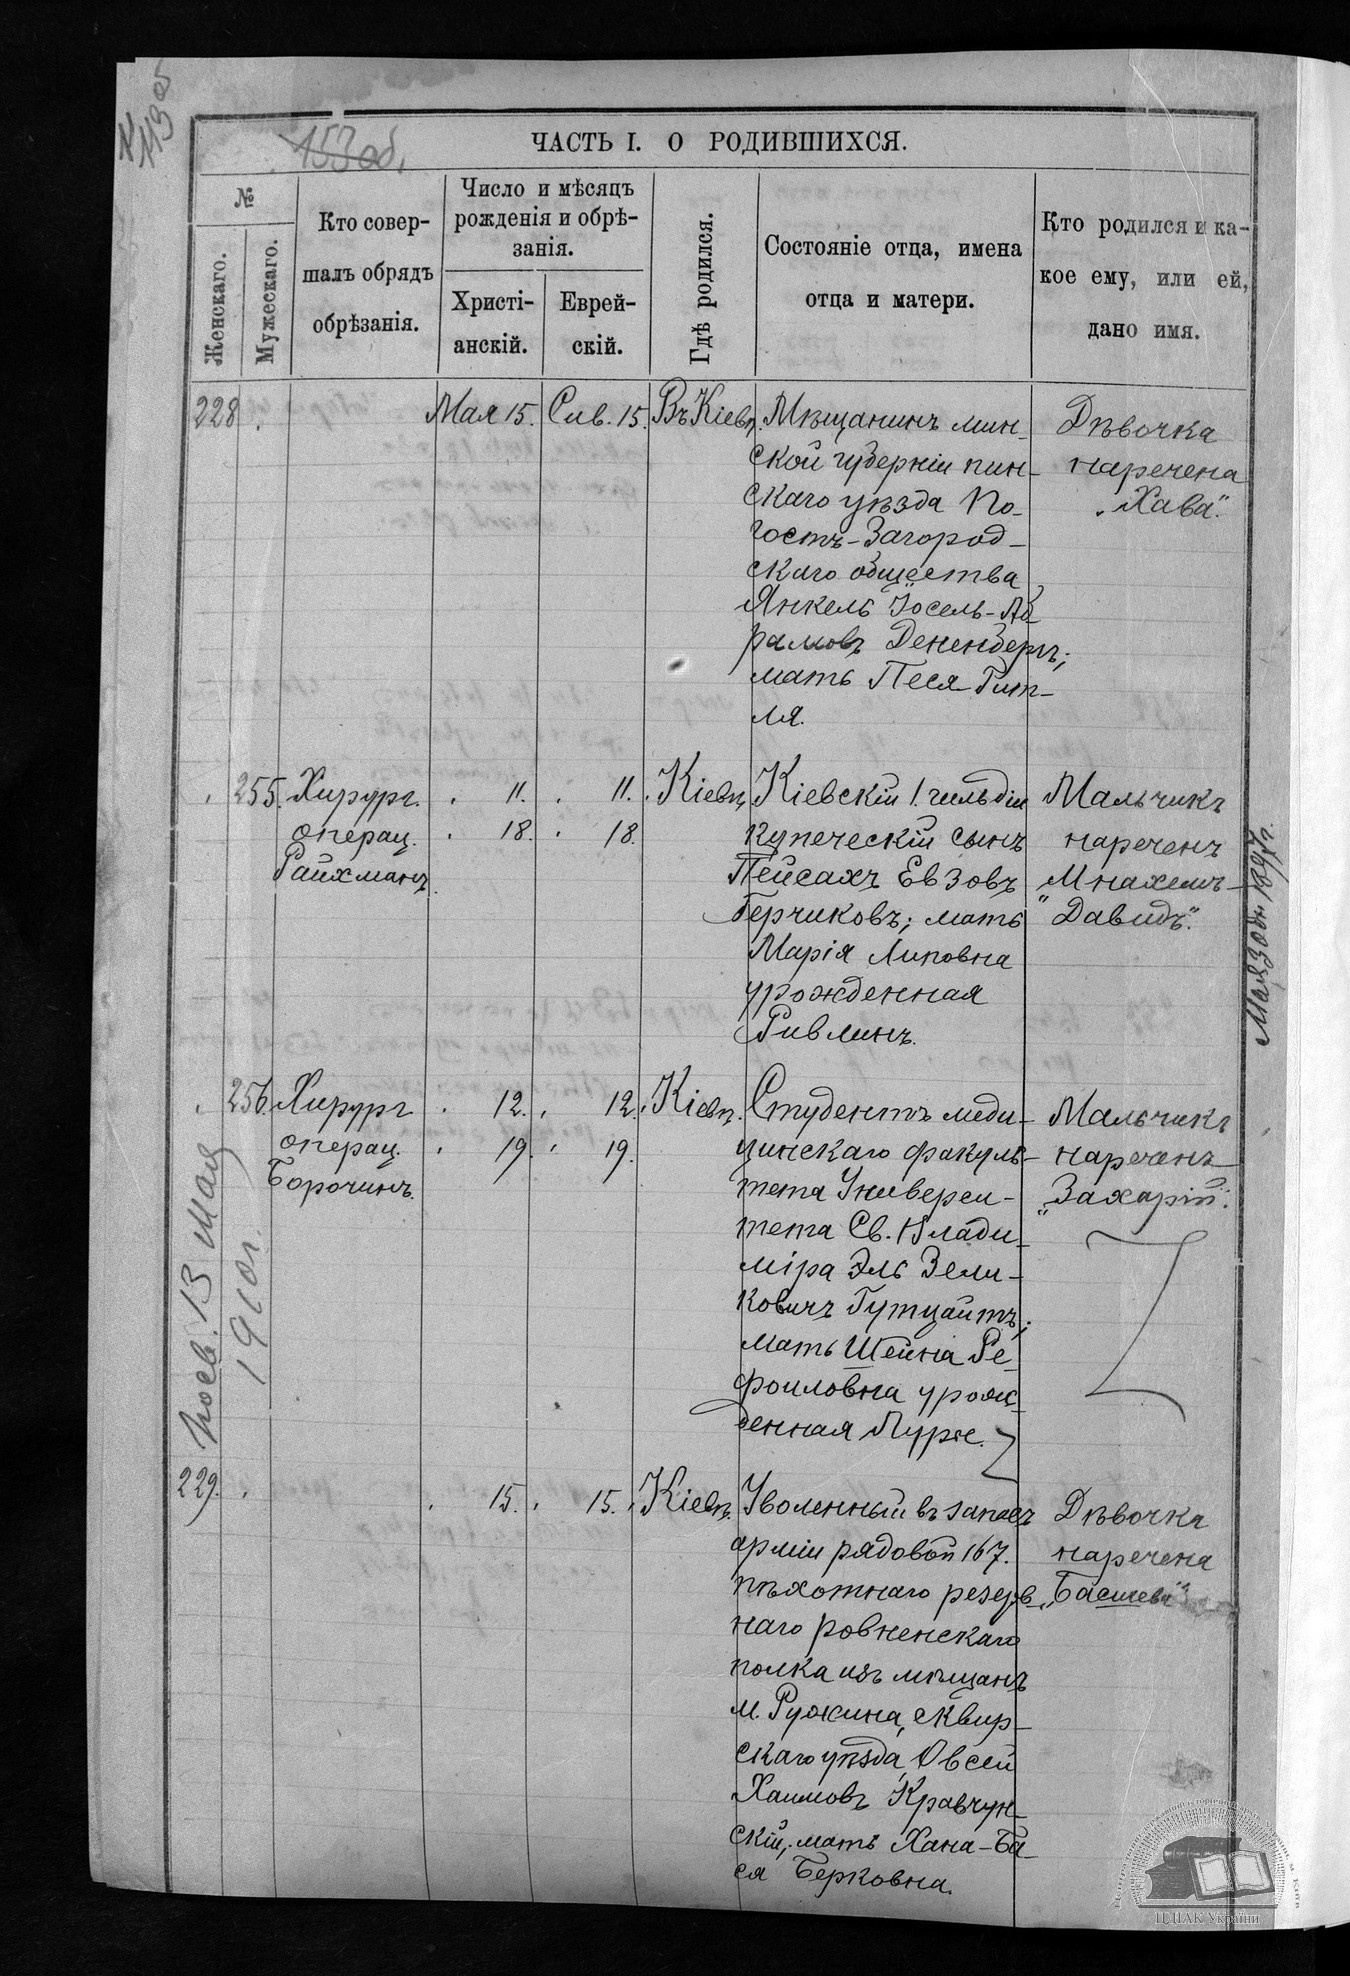 153 об.
ЧАСТЬ I. О РОДИВШИХСЯ.
№
Женскаго.
Мужескаго.
Кто совер-
шалъ обрядъ
обрѣзанія.
Число и мѣсяцъ
рожденія и обрѣ-
занія.
Христі-
анскій.
Еврей-
скій.
Гдѣ родился.
Состояніе отца, имена
отца и матери.
Кто родился и ка-
кое ему, или ей,
дано имя.
228
Мая 15.
Сив. 15.
Въ Кіевѣ.
Мѣщанинъ мин-
ской губерніи пин-
скаго уѣзда По-
гостъ-Загород-
скаго общества
Янкель Іосель-Аб-
рамовъ Дененбергъ;
мать Песя-Гит-
ля.
Дѣвочка
наречена
"Хава".
255.
Хирург.
операц.
Райхманъ.
11.
18.
11.
18.
Кіевѣ
Кіевскій 1. гильдіи
купеческій сынъ
Пейсахъ Евзовъ
Герчиковъ; мать
Марія Липовна
урожденная
Ривлинъ.
Мальчикъ
нареченъ
Мнахемъ-
"Давидъ".
256.
Хирург
операц.
Борочинъ.
12.
19.
12.
19.
Кіевѣ.
Студентъ меди-
цинскаго факуль-
тета Универси-
тета Св. Влади-
міра Эль Зели-
ковичъ Гутцайтъ;
мать Шейна Ре-
фоиловна урож-
денная Пурж.
Мальчикъ
нареченъ
"Захарій".
229.
15.
15.
Кіевѣ.
Уволенный въ запасъ
арміи рядовой 167.
пѣхотнаго резерв-
наго ровненскаго
полка изъ мѣщанъ
м. Ружина, сквир-
скаго уѣзда, Овсей
Хаимовъ Кравчун-
скій; мать Хана-Ба-
ся Берковна.
Дѣвочка
наречена
"Басшева"
13 Мая
1910 г.
1897 г.
ЦДІАК України